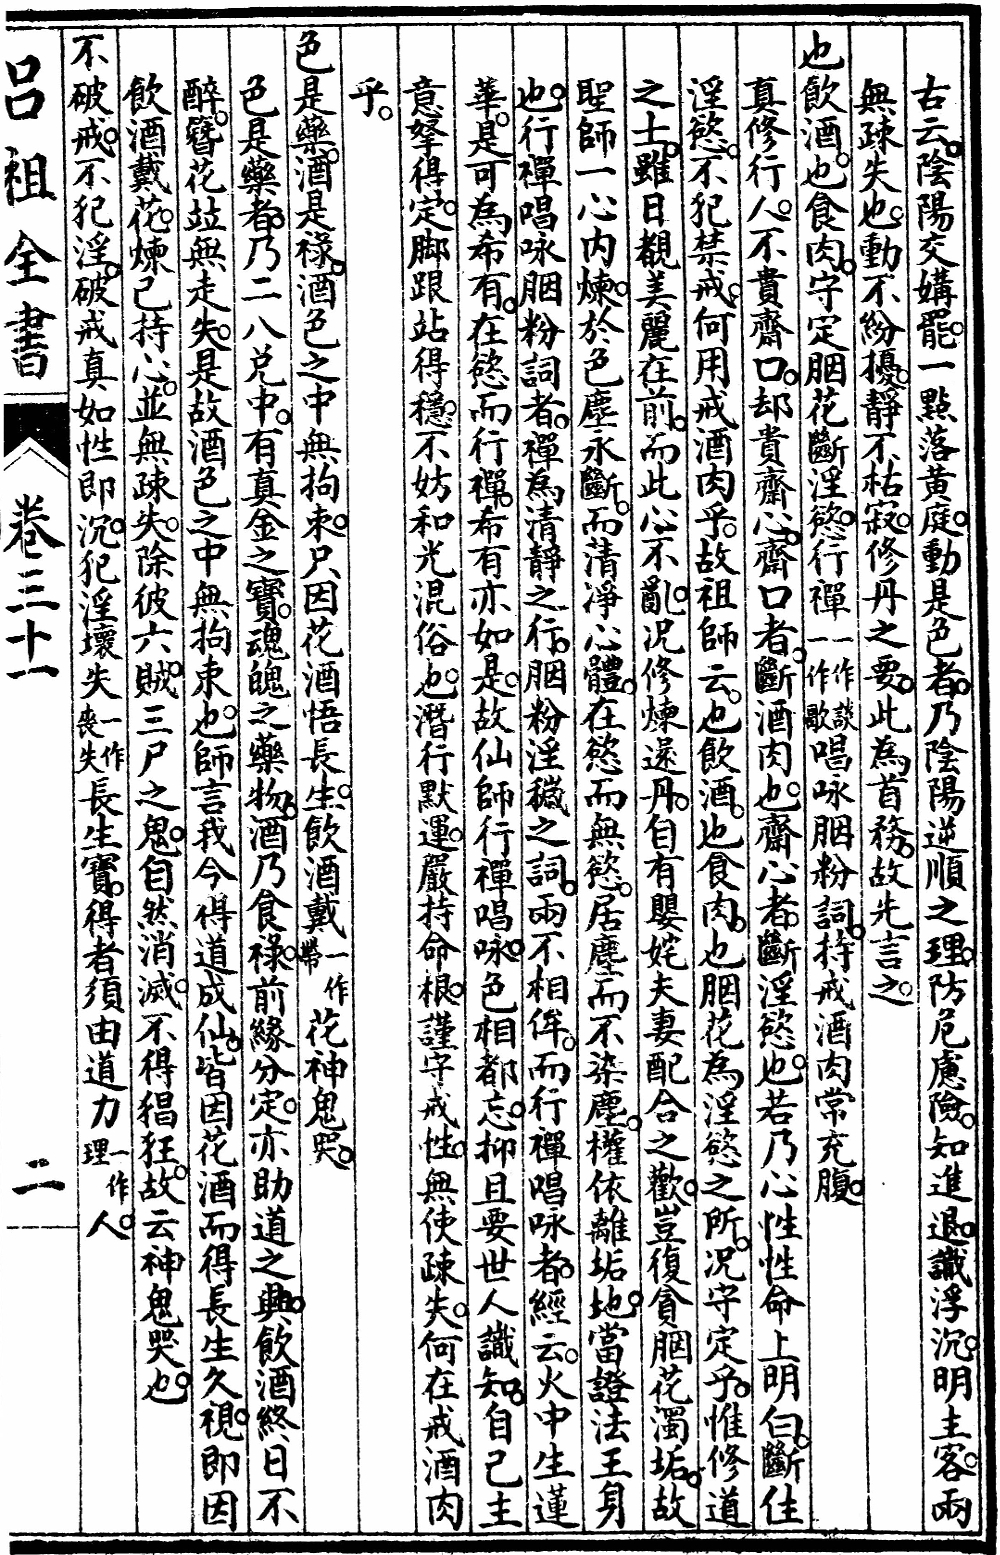 古云。陰陽交媾罷。一點落黃庭。動是色者。乃陰陽逆順之理。防危慮險。知進退。識浮沉。明主客。兩
無疎失也。動不紛擾。靜不枯寂。修丹之要。此為首務。故先言之。
也飲酒。也食肉。守定胭花斷淫慾。行禪一作談一作歌唱咏胭粉詞。持戒酒肉常充腹。
真修行人。不貴齋口。却貴齋心。齋口者。斷酒肉也。齋心者。斷淫慾也。若乃心性性命上明白。斷住
淫慾。不犯禁戒。何用戒酒肉乎。故祖師云。也飲酒。也食肉。也胭花為淫慾之所。況守定乎。惟修道
之士。雖日覩美麗在前。而此心不亂。況修煉還丹。自有嬰姹夫妻配合之歡。豈復貪胭花濁垢。故
聖師一心內煉。於色塵永斷。而清淨心體。在慾而無慾。居塵而不染塵。權依離垢地。當證法王身
也。行禪唱咏胭粉詞者。禪為清靜之行。胭粉淫穢之詞。兩不相侔。而行禪唱咏者。經云。火中生蓮
華。是可為希有。在慾而行禪。希有亦如是。故仙師行禪唱咏。色相都忘。抑且要世人識知。自己主
意拏得定。脚跟站得穩。不妨和光混俗也。潛行默運。嚴持命根。謹守戒性。無使疎失。何在戒酒肉
乎。
色是藥。酒是祿。酒色之中無拘束。只因花酒悟長生。飲酒戴一作帶花神鬼哭。
色是藥者。乃二八兌中。有真金之寶。魂魄之藥物。酒乃食祿。前緣分定。亦助道之興。飲酒終日不
醉。簪花並無走失。是故酒色之中無拘束也。師言我今得道成仙。皆因花酒而得長生久視。即因
飲酒戴花。煉己持心。並無疎失。除彼六賊。三尸之鬼。自然消滅。不得猖狂。故云神鬼哭也。
不破戒。不犯淫。破戒真如性即沉。犯淫壞失一作喪失長生寶。得者須由道力一作理人。
呂祖全書
卷三十一
二